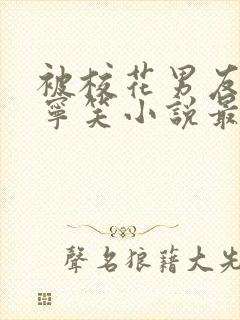 被校花男友
寧笑小說最
聲名狼藉大先